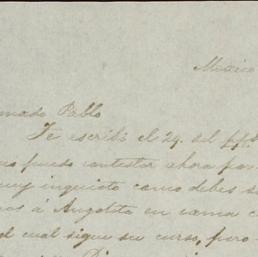 Mexico
mado Pablo
Te escribí el 24. del pp
puedo contestar ahora por
muy inquieto como debes
á Angelita en cama
cual sigue su curso, pero